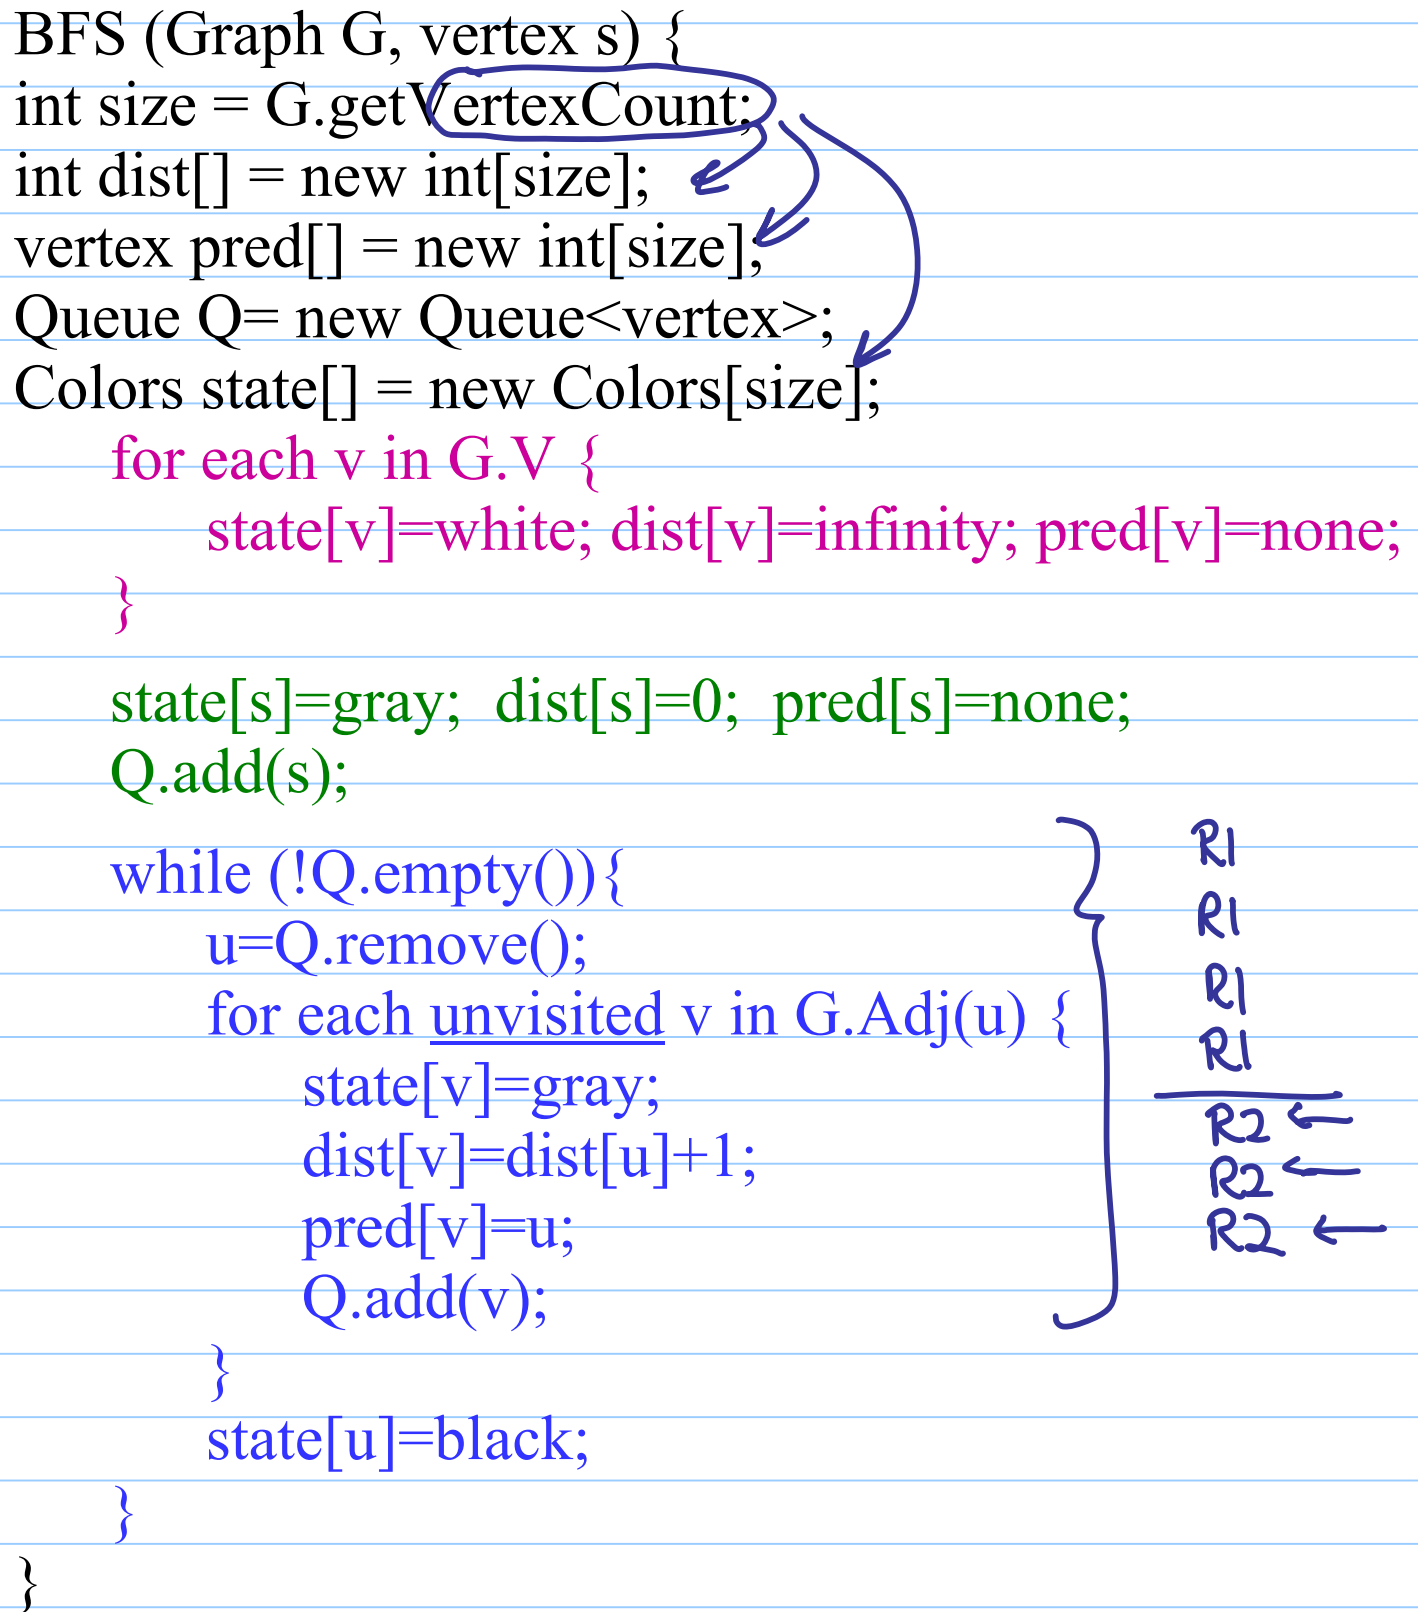 BFS (Graph G, vertex s) {
int size = G.getVertexCount;
int dist[] = new int[size];
vertex pred[] = new int[size];
Queue Q= new Queue<vertex>;
Colors state[] = new Colors[size];
for each v in G.V {
state[v]=white; dist[v]=infinity; pred[v]=none;
}
state[s]=gray; dist[s]=0; pred[s]=none;
Q.add(s);
while (!Q.empty()){
u=Q.remove();
for each unvisited v in G.Adj(u) {
state[v]=gray;
dist[v]=dist[u]+1;
pred[v]=u;
Q.add(v);
}
state[u]=black;
}
}
R1
R1
R1
R1
R2
R2
R2